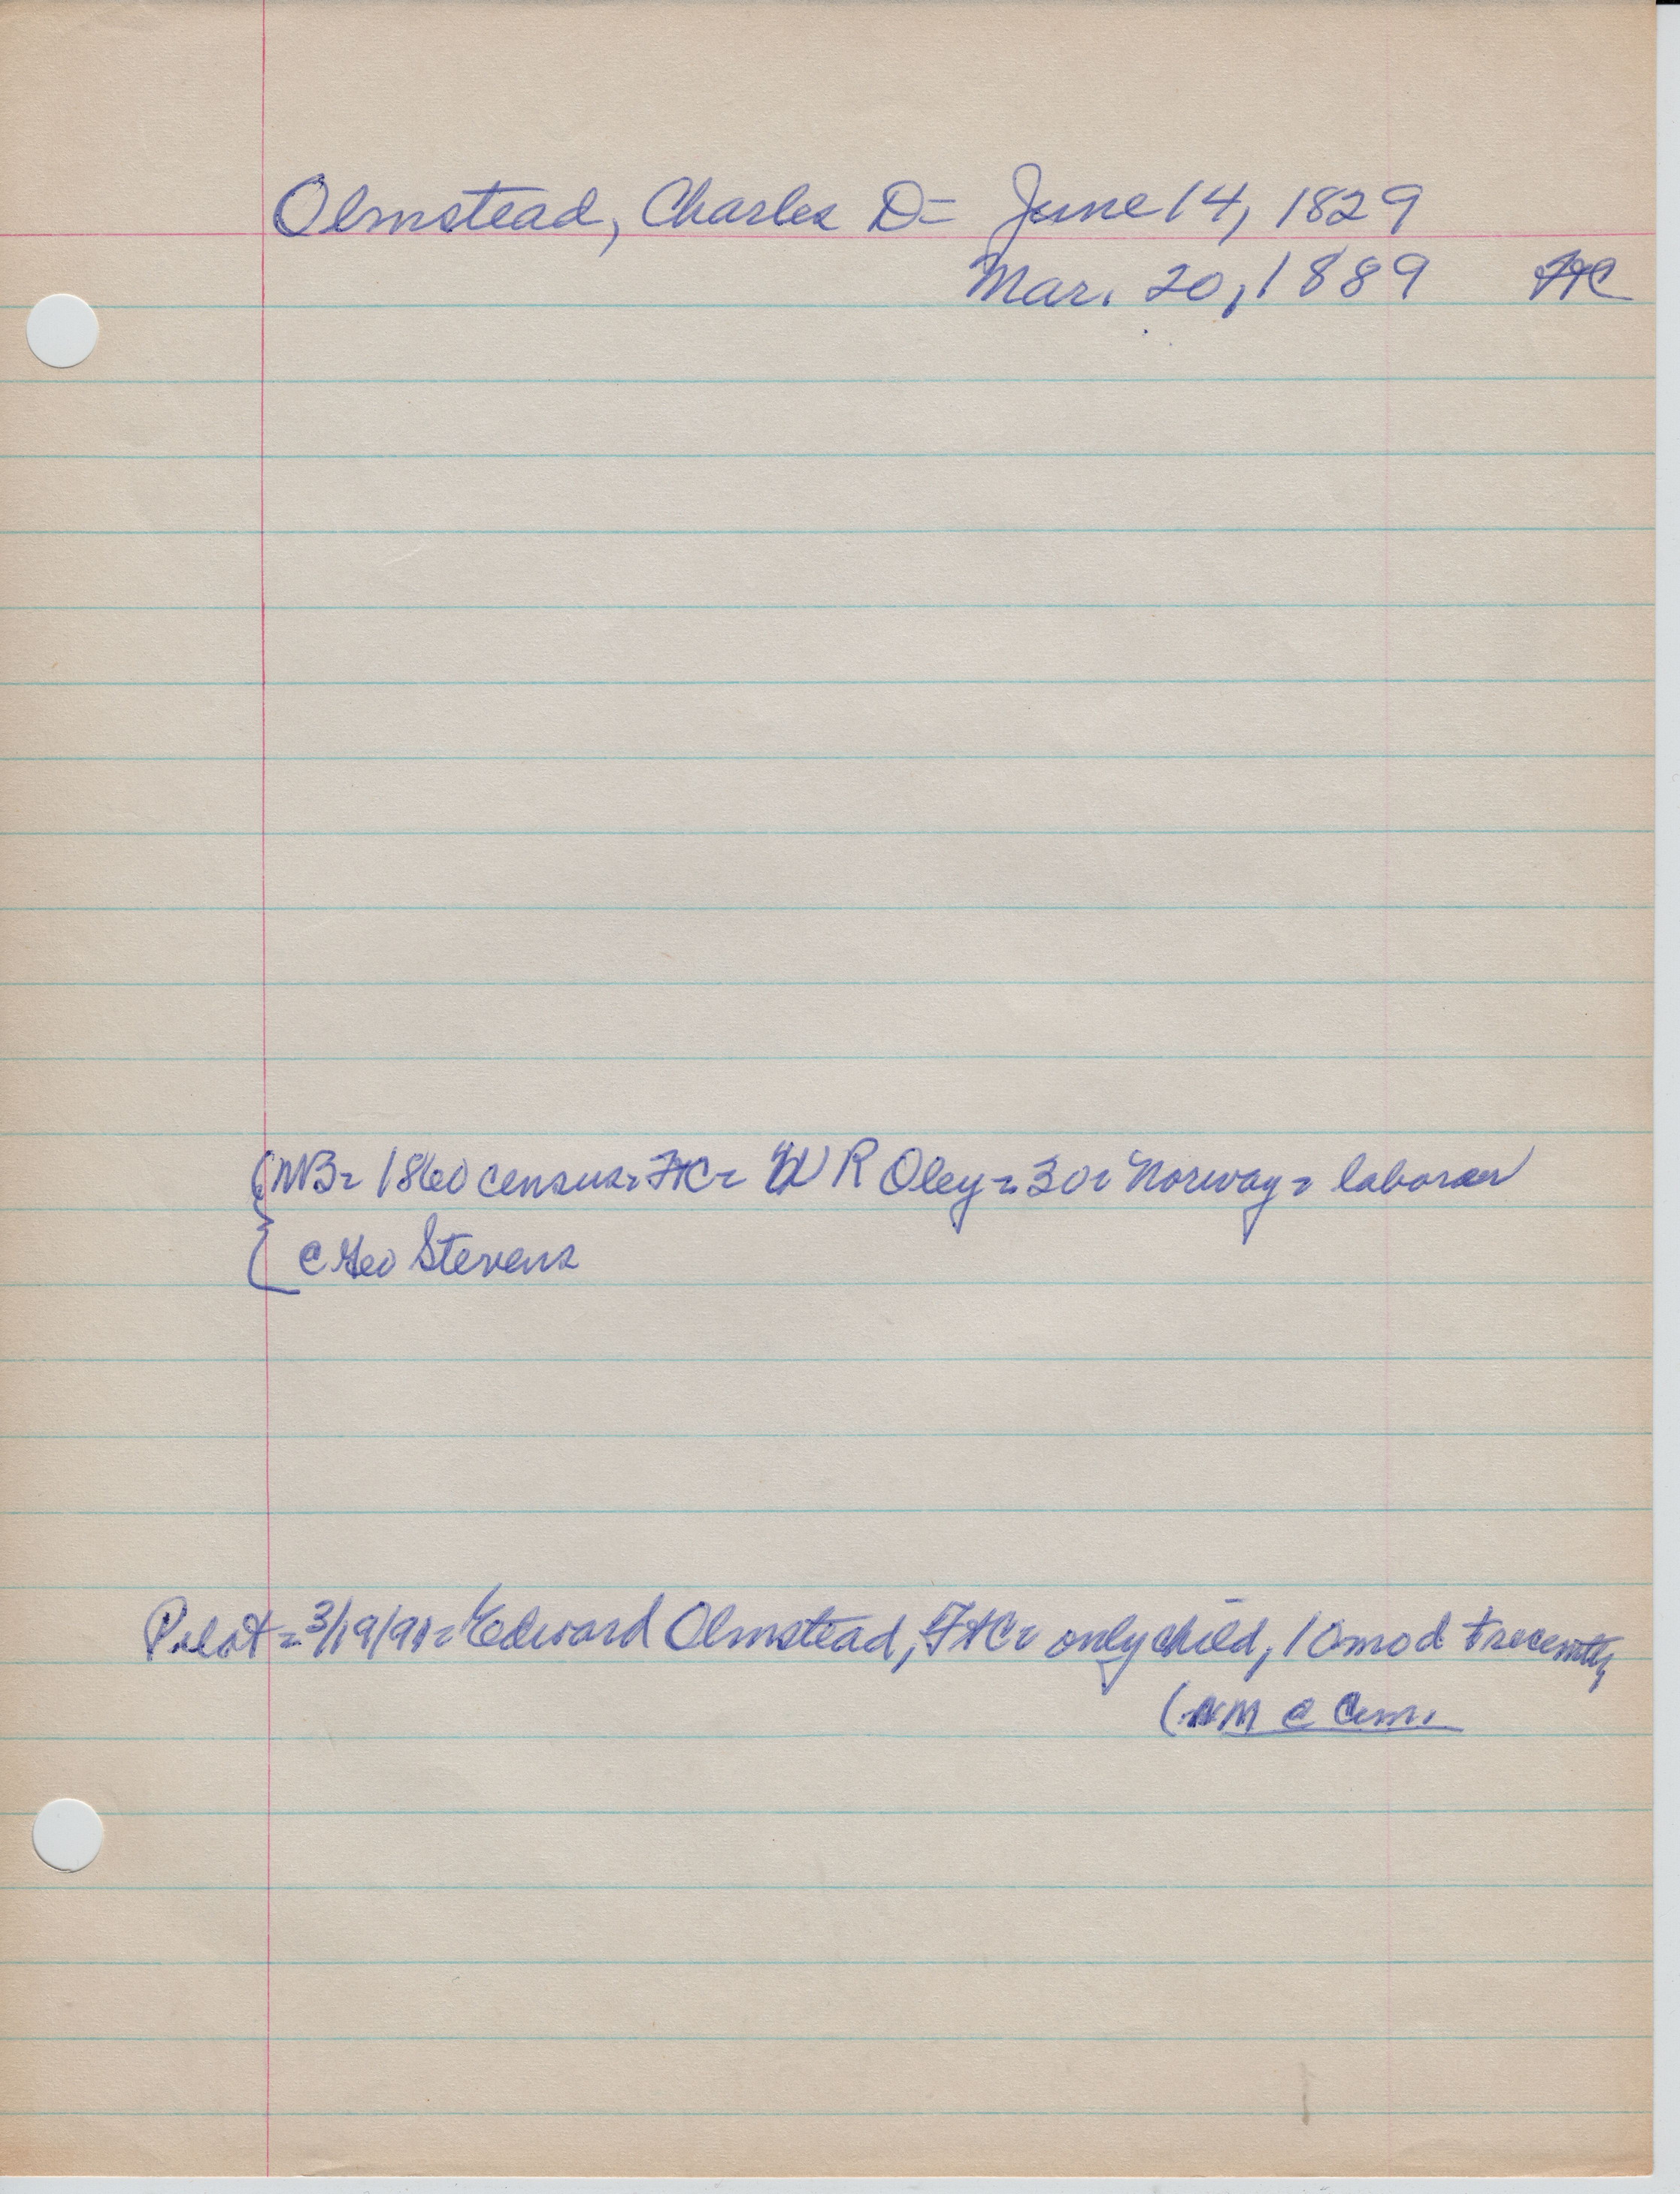 Olmstead, Charles D= June 14, 1829
Mar. 20, 1889 FtC
(NB= 1860 census= FtC= W R Oley= 30= Norway= laborer
c Geo Stevens
Pilot= 3/19/91= Edward Olmstead, FtC= only child, 10 mo d recently
(NM c Cem.